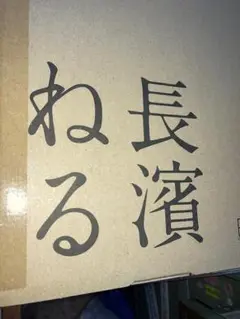 長濱
ねる